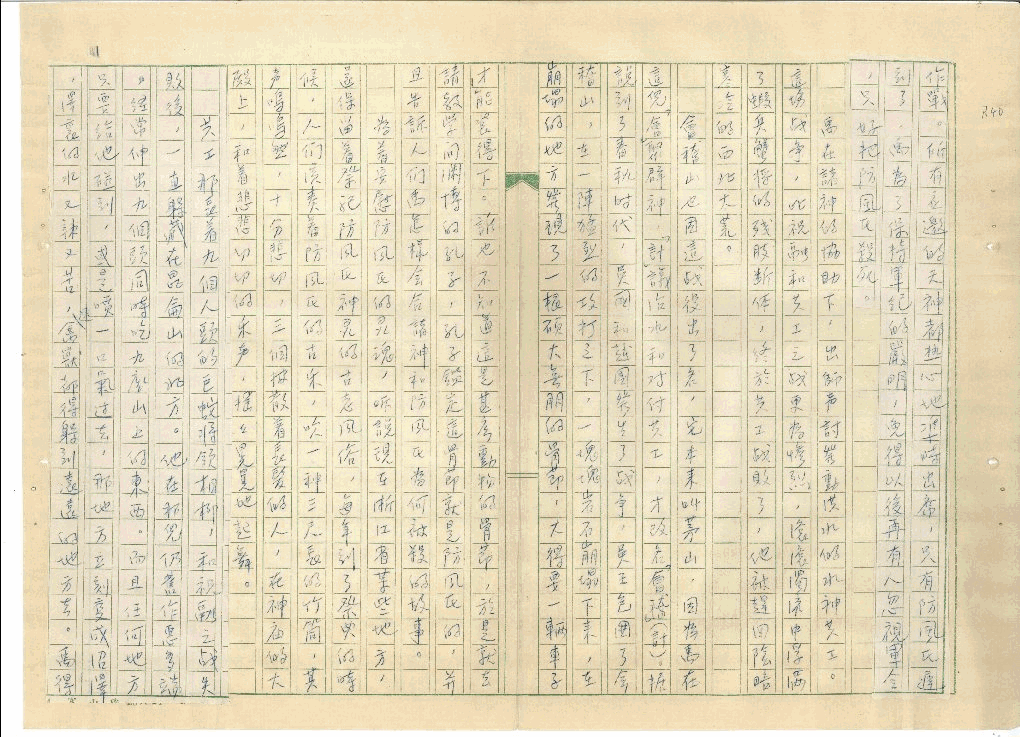 作戰。所有应邀的天神都热心地準時出席,只有防風氏遲
到了,禹為了保持軍紀的嚴明,免得以後再有人忽視軍令
,只好把防風氏殺死。
禹在諸神的協助下,出師声討發動洪水的水神共工。
這場战争,比祝融和共工之战更為慘烈,滾滾濁浪中浮满
了蝦兵蟹将的残肢断体,終於共工战敗了,他被趕回陰暗
寒冷的西北大荒。
會稽山也因這战役出了名,它本来叫茅山,因為禹在
這兒「會」聚群神,「計」議治水和对付共工,才改名「會稽(計)」。据
說到了春秋时代,吳國和越國發生了战争,吳王包围了會
稽山,在一陣猛烈的攻打之下,一塊塊岩石崩塌下来,在
崩塌的地方發現了一根碩大無朋的骨節,大得要一輛車子
才能裝得下。誰也不知道這是甚麼動物的骨節,於是就去
請教学问渊博的孔子,孔子鑑定這骨節就是防風氏的,并
且告訴人们禹怎樣会合諸神和防風氏為何被殺的故事。
為着安慰防風氏的灵魂,听說現在浙江省某些地方,
還保留着祭祀防風氏神灵的古老風俗,每年到了祭典的時
候,人们演奏着防風氏的古乐,吹一种三尺長的竹筒,其
声嗚嗚然,十分悲切,三個披散着長髮的人,在神庙的大
殿上,和着悲悲切切的乐声,摇摇晃晃地起舞。
共工那長着九個人頭的巨蛇将領相柳,和祝融之战失
敗後,一直躲藏在昆侖山的北方。他在那兒仍舊作惡多端
。經常伸出九個頭同時吃九座山上的東西。而且任何地方
只要給他碰到,或是噴一口氣过去,那地方立刻变成沼澤
,澤裏的水又辣又苦,連禽獸都得躲到遠遠的地方去。禹得
R40